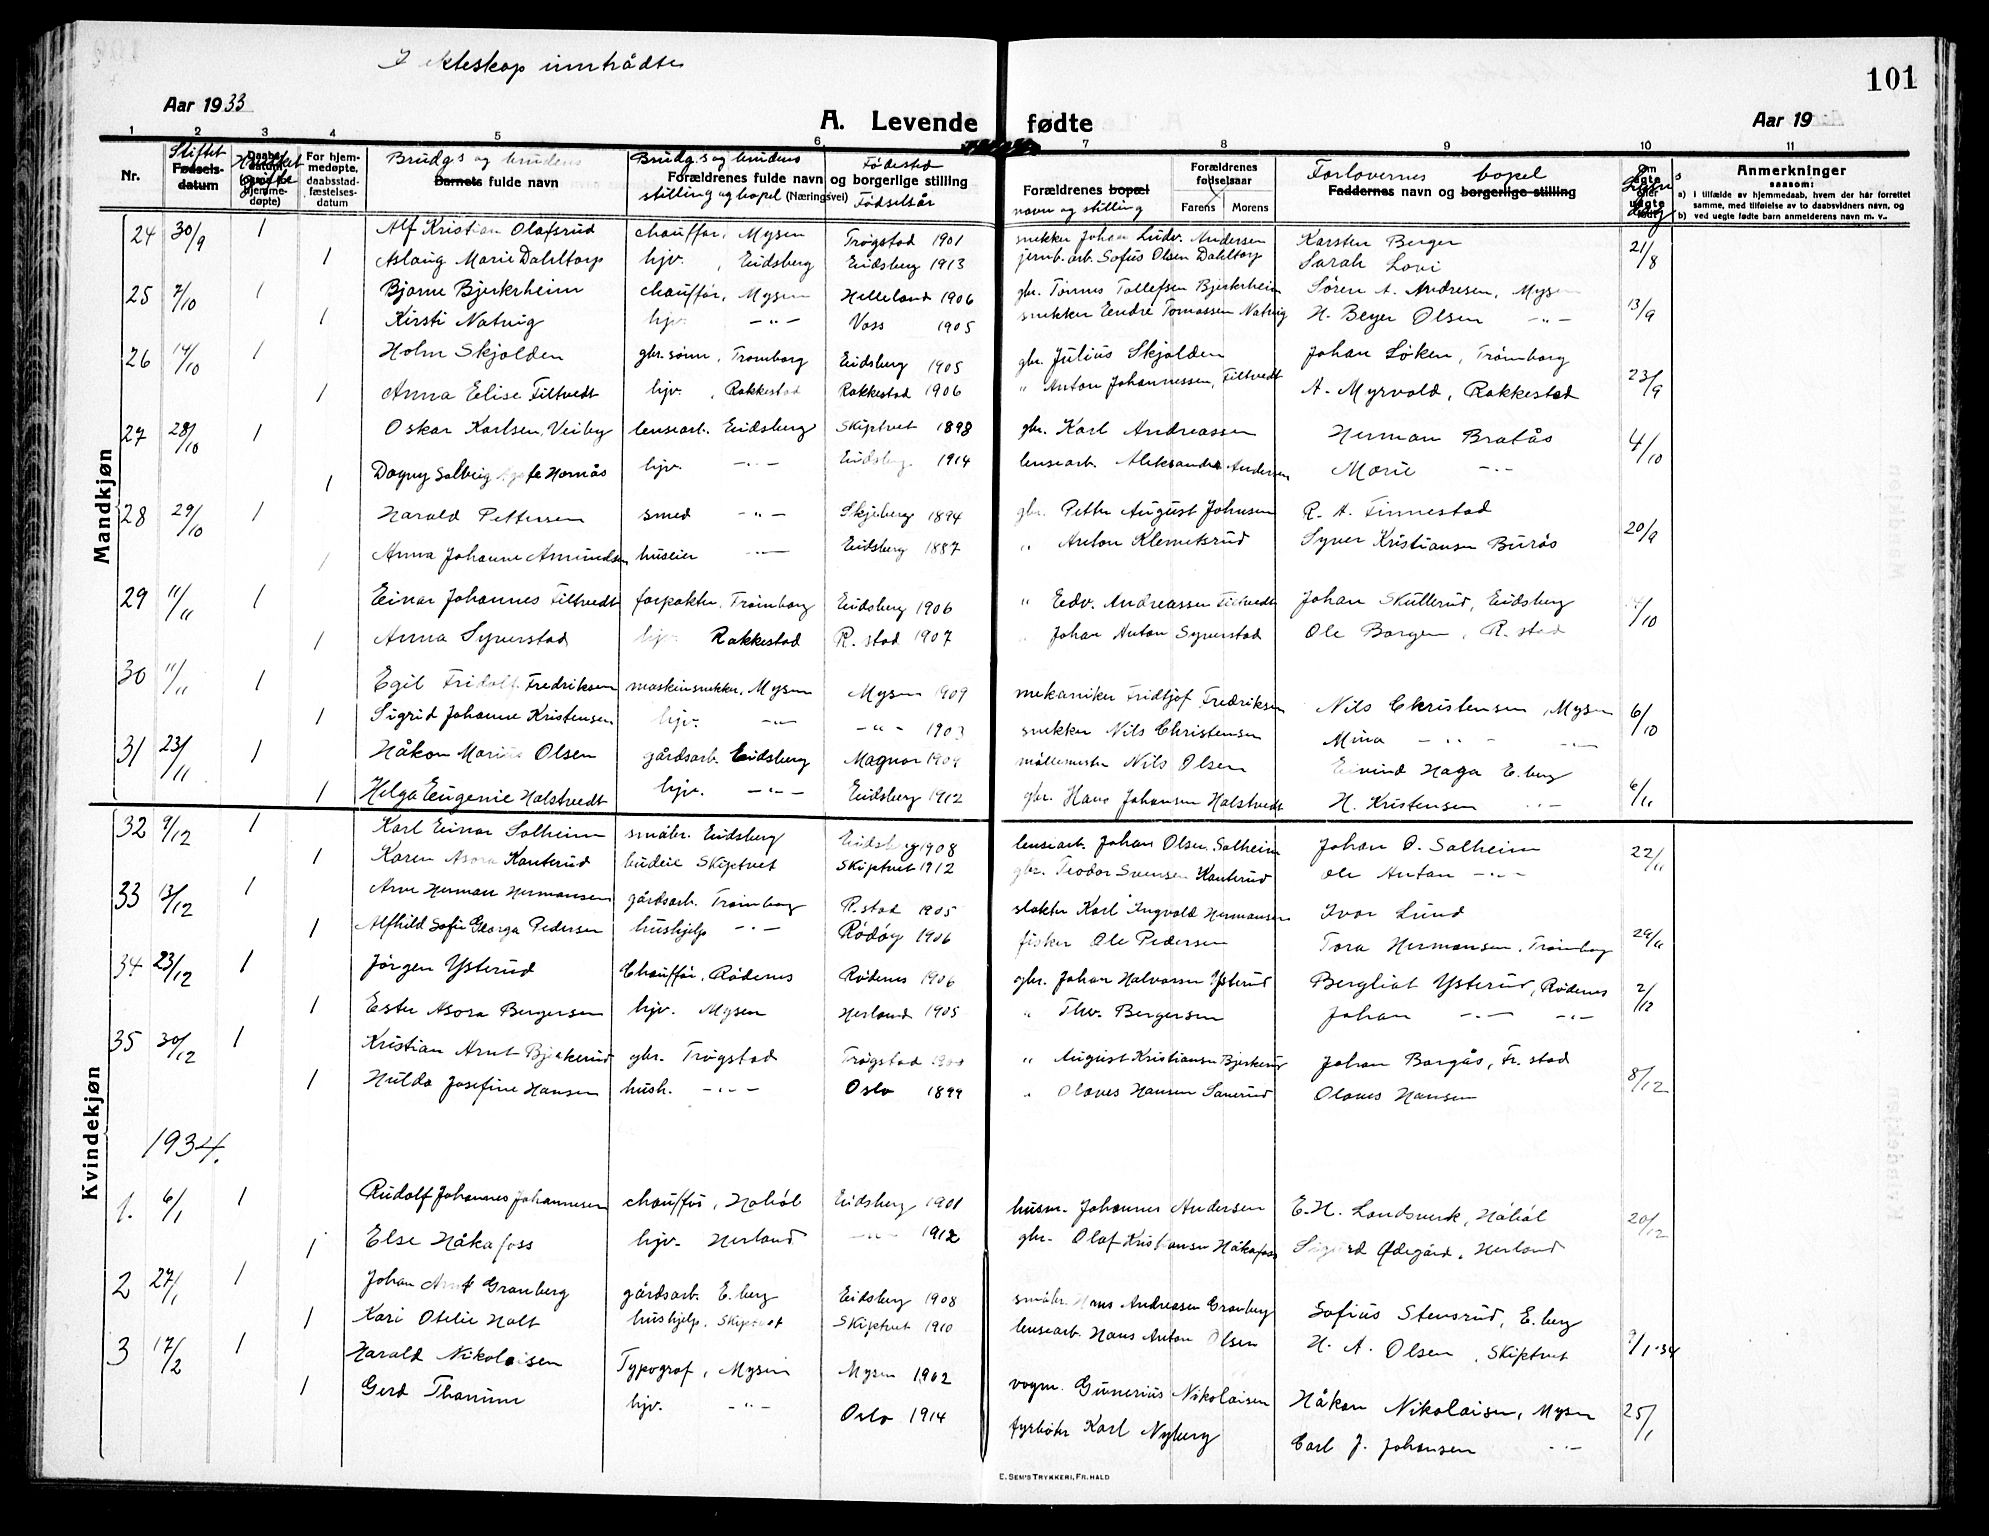 I ekteskap inntrådte
101
Aar 1933
Aar 19
A. Levende fødte
1 2 3 4 5 6 7 8 9 10 11
Nr.
Stiftet
Fødsels-
datum
For hjem-
medøpte,
daabsstad-
fæstelses-
datum
Brudgs og brudens
Barnets fulde navn
Brudgs og brudens Fødested
Forældrenes fulde navn og borgerlige stilling
stilling og bopel (Næringsvei) Fødselsår
Forældrenes bopæl
navn og stilling
Forældrenes
fødselsaar
Farens Morens
Forlovernes bopel
Faddernes navn og borgerlige stilling
Anmerkninger
saasom:
a) I tilfælde av hjemmedaab, hvem der har forrettet
samme, med tilføielse av to daabsvidners navn, og
b) ved uegte fødte barn anmelderens navn m. v..
Mandkjøn
24 30/9 1 Alf Kristian Olafsrud chauffør, Mysen Trøgstad 1901 snekker Johan Ludv. Andersen Karsten Berger 21/8
1 Aslaug Marie Dahltorp hjv. , Eidsberg Eidsberg 1913 jernb.arb. Sofus Olsen Dahltorp Sarah Lovi
25 7/10 1 Bjarne Bjerkrheim chauffør, Mysen Helleland 1906 gbr. Tønnes Tollefsen Bjerkrheim Søren A. Andresen, Mysen 13/9
1 Kirsti Natvig hjv. -"- Voss 1905 snekker Endre Tomassen Natvig H. Beyer Olsen -"-
26 14/10 1 Holm Skjolden gbr. sønn, Trømborg Eidsberg 1905 gbr. Julius Skjolden Johan Løken, Trømborg 23/9
1 Anna Elise Tiltvedt hjv. , Rakkestad Rakkestad 1906 " Anton Johannessen, Tiltvedt A. Myrvold, Rakkestad
27 28/10 1 Oskar Karlsen, Veiby lensearb. Eidsberg Skiptvet 1898 gbr. Karl Andreassen Herman Bratås 4/10
1 Dagny Solveig Hornås hjv. -"- Eidsberg 1914 lensearb. Aleksander Andersen Marie -"-
28 29/10 1 Harald Pettersen smed -"- Skjeberg 1894 gbr. Petter August Johnsen R. A. Finnestad 20/9
1 Anna Johanne Amundsen huseier -"- Eidsberg 1887 " Anton Klemetsrud Syver Kristiansen Burås
29 11/11 1 Einar Johannes Tiltvedt forpakter, Trømborg Eidsberg 1906 " Edv. Andreassen Tiltvedt Johan Skullerud, Eidsberg /10
1 Anna Syverstad hjv. Rakkestad R. stad 1907 " Johan Anton Syverstad Ole Borgen, R. stad
30 11/11 1 Egil Fridolf Fredriksen maskinsnekker, Mysen Mysen 1909 mekaniker Fridtjof Fredriksen Nils Christensen, Mysen 6/10
1 Sigrid Johanne Kristensen hjv. -"- -"- 1903 snekker Nils Christensen Mina -"- -"-
31 23/11 1 Håkon Marius Olsen gårdsarb. Eidsberg Magnor 1904 møllemester Nils Olsen Eivind Haga E. berg 6/11
1 Helga Eugenie Halstvedt hjv. -"- Eidsberg 1912 gbr. Hans Johansen Halstvedt H. Kristensen -"-
Kvindekjøn
32 9/12 1 Karl Einar Solheim småbr. Eidsberg Eidsberg 1908 lensearb. Johan Olsen Solheim Johan O. Solheim 22/11
1 Karen Asora Kanterud budeie Skiptvet Skiptvet 1912 gbr. Teodor Svensen Kanterud Ole Anton -"-
33 13/12 1 Arne Herman Hermansen gårdsarb. Trømborg R.stad 1905 slakter Karl Ingvald Hermansen Ivar Lund 29/11
1 Alfhild Sofie Georga Pedersen hushjelp -"- Rødøy 1906 fisker Ole Pedersen Tora Hermansen, Trømborg
34 23/12 1 Jørgen Ysterud Chauffør, Rødenes Rødenes 1906 gbr. Johan Halvorsen Ysterud Bergliot Ysterud, Rødenes 2/12
1 Ester Asora Bergersen hjv. Mysen Herland 1905 " Thv. Bergersen Johan -"- -"-
35 30/12 1 Kristian Arnt Bjerkerud gbr. Trøgstad Trøgstad " August Kristiansen Bjerkerud Johan Borgås, Fr. stad 8/12
1 Hulda Josefine Hansen hush. -"- Oslo 1899 " Olaves Hansen Sanerud Olaves Hansen
1934.
1. 6/1 1 Rudolf Johannes Johannesen chauffør, Håbøl Eidsberg 1901 husm. Johannes Andersen E. H. Landsverk, Håbøl 20/12
1 Else Håkafoss hjv. Herland -"- 1912 gbr. Olaf Kristiansen Håkafoss Sigurd Ødegård, Herland
2 27/1 1 Johan Arnt Granberg gårdsarb. E. berg Eidsberg 1908 småbr. Hans Andreasen Granberg Sofius Stensrud, E. berg 9/1-34
1 Kari Otelie Holt hushjelp, Skiptvet Skiptvet 1910 lensearb. Hans Anton Olsen H. A. Olsen, Skiptvet
3 17/2 1 Harald Nikolaisen Typograf, Mysen Mysen 1902 vogm. Gunerius Nikolaisen Håkon Nikolaisen, Mysen 25/1
1 Gerd Thanum hjv. -"- Oslo 1914 fyrbøter Karl Nyberg Carl J. Johansen -"-
E. SEM'S TRYKKERI, FR.HALD